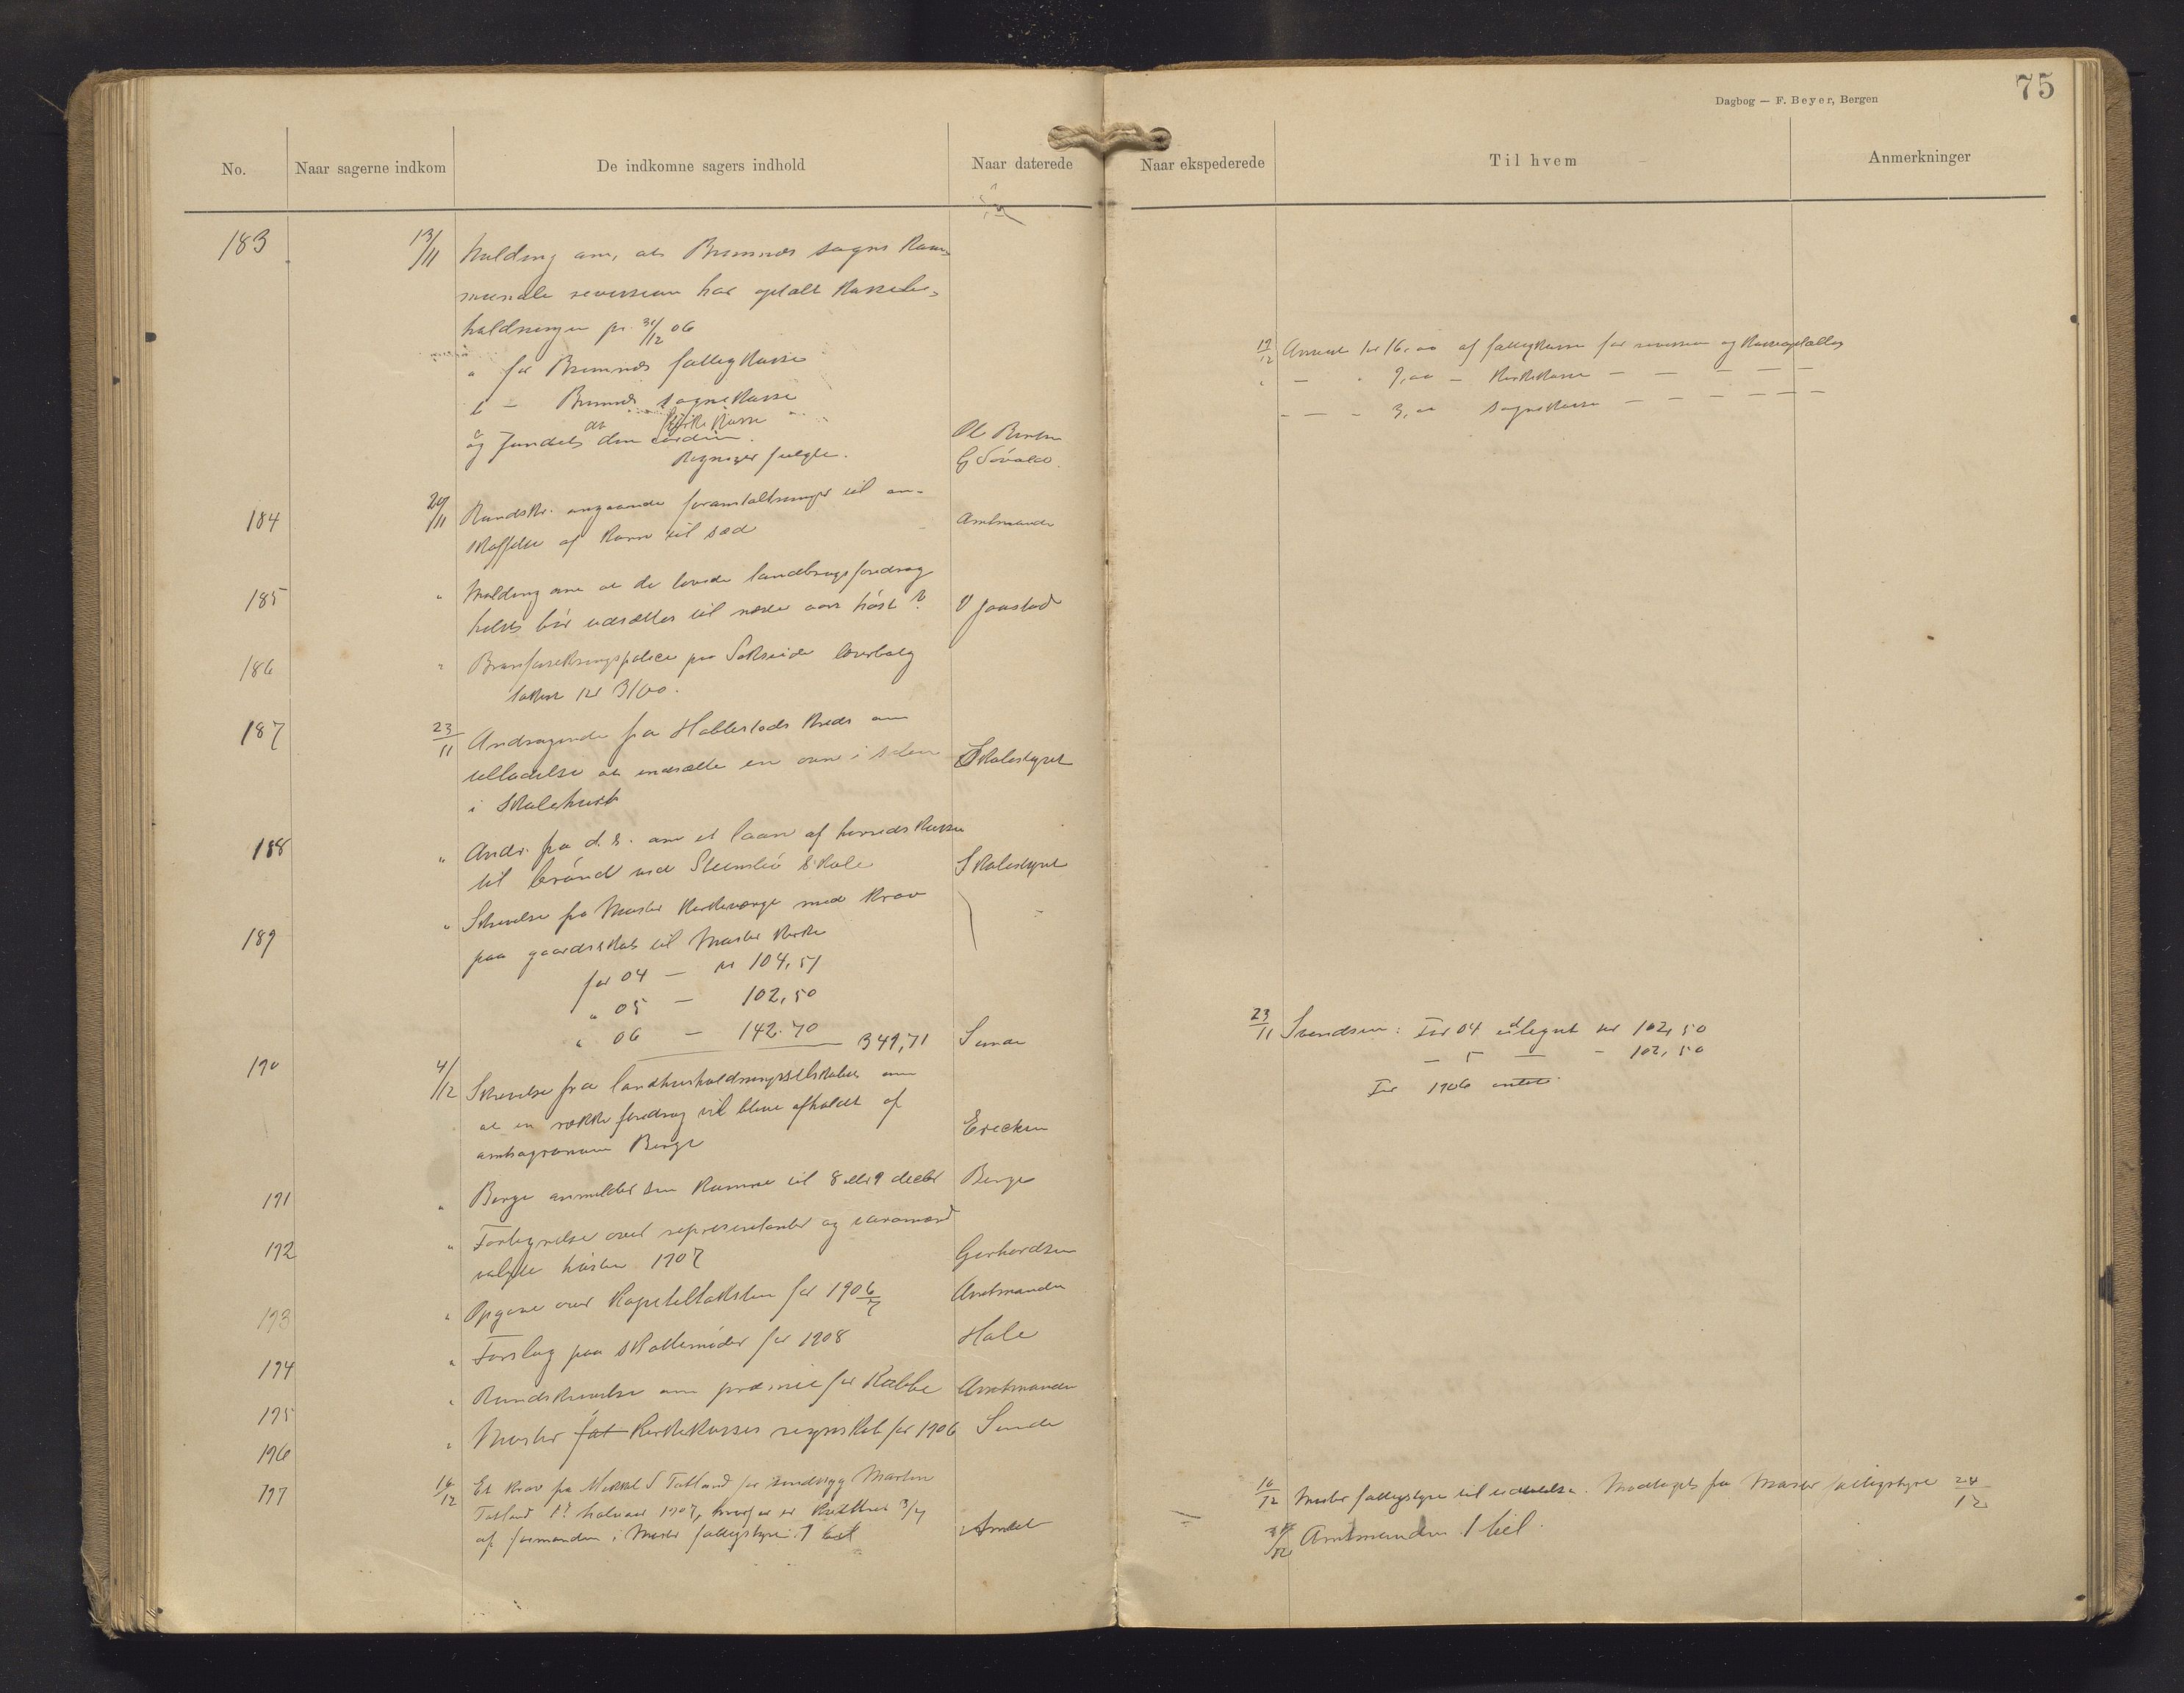 75
Dagbog — F. Beyer, Bergen
No. Naar sagerne indkom De indkomne sagers indhold Naar daterede Naar ekspederede Til hvem Anmerkninger
183 13/11 Melding om, at Bremnes sogns kom-
munale revision har optalt kassebe-
holdningen pr. 31/12 06
" for Bremnes fattigkasse
" — Bremnes sognekasse
do kirkekasse
og fandtes den i orden.
Regninger fulgte.
19/12 Anvist kr 16,00 af fattigkassen for revision og kasseoptælling
" — " 9,00 — Kirkekassen — — — —
— — — 3,00 sognekassen — — — — —
184 20/11 Rundskr. angaaende foranstaltninger til an-
skaffelse af korn til sæd Amtmanden
185 " Melding om at de lovede landbrugsforedrag
helst bør udsættes til næste aars høst? V Jaastad
186 " Brandforsikringspolice paa
takst kr 3100.
187 23/11 Andragende fra kreds om
tilladelse at indsætte en ovn i
i Skolehuset Skolestyret
188 " Andr. fra d. s. om et laan af herredskassen
til brønd ved skole Skolestyret
189 " Skrivelse fra Moster Kirkeværge med krav
paa gaardsskat til Moster Kirke
for 04 — kr 104,51
" 05 — 102,50
" 06 — 142.70 349,71 Sunde
23/11 Svendsen: For 04 udlignet kr 102,50
— 5 — — 102,50
For 1906 intet
190 4/12 Skrivelse fra landhusholdningsselskabet om
at en række foredrag vil blive afholdt af
amtsagronom Berge
191 " Berge anmelder sin komme til 8 eller 9 decbr Berge
192 " Fortegnelse over representanter og varamænd
valgte høsten 1907 Gerhardsen
193 " Opgave over Kapiteltaksten for 1906/7 Amtmanden
194 " Forslag paa skattemøder for 1908
195 " Rundskrivelse om præmie for Kobbe Amtmanden
196 " Moster fat Kirkekasses regnskab for 1906 Sunde
197 16/12 Et krav fra S Totland for
Totland 1ste halvaar 1907, hvorfor er kvitteret 3/7
af formanden i Moster fattigstyre. 1 bil
16/12 Moster fattigstyre til udtalelse. Modtaget fra Moster fattigstyre 24/12
Amtmanden 1 bil.